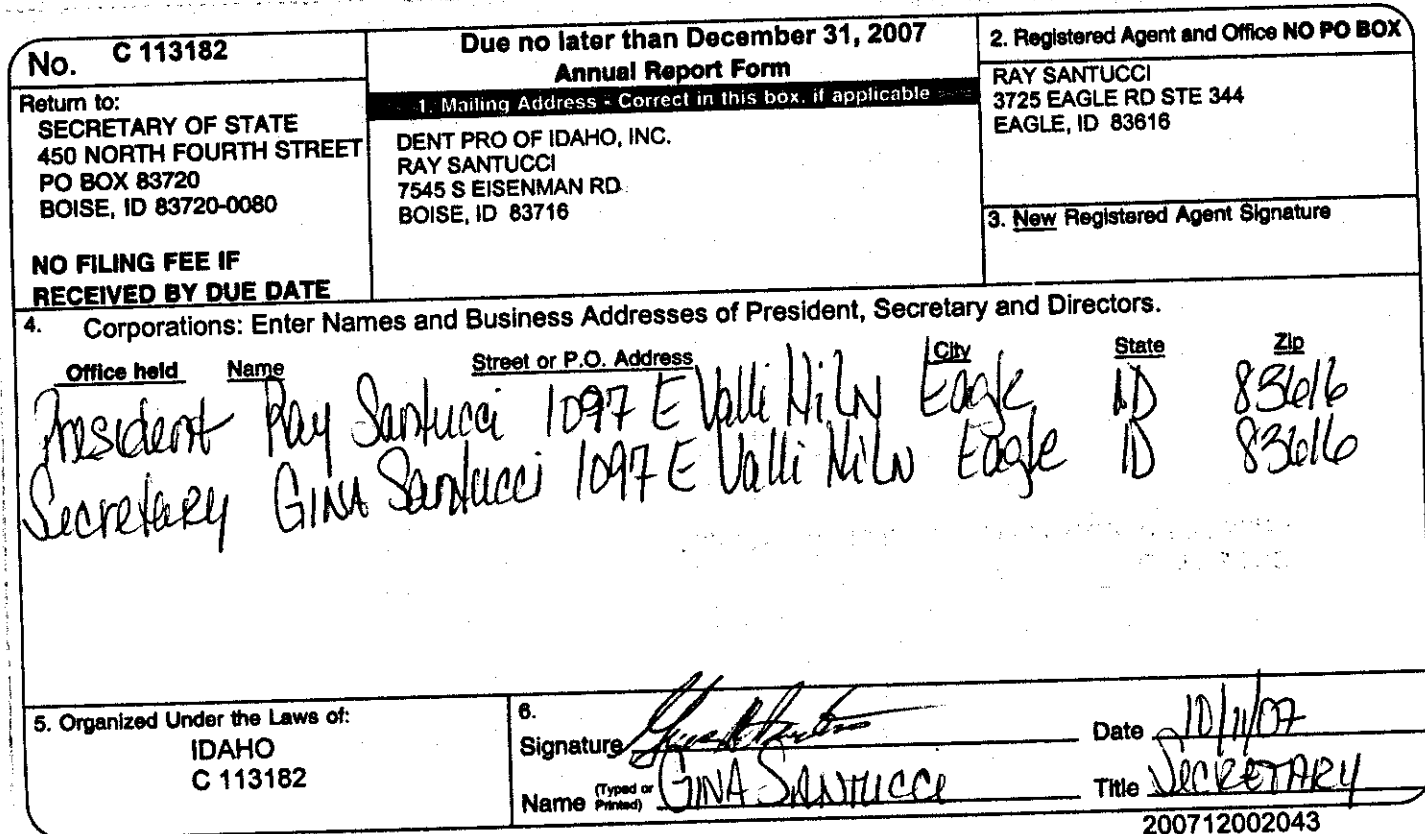 No. C 113182
Return to:
SECRETARY OF STATE
450 NORTH FOURTH STREET
PO BOX 83720
BOISE, ID 83720-0080
NO FILING FEE IF
RECEIVED BY DUE DATE
Due no later than December 31, 2007
Annual Report Form
1. Mailing Address - Correct in this box, if applicable
DENT PRO OF IDAHO, INC.
RAY SANTUCCI
7545 S EISENMAN RD
BOISE, ID 83716
2. Registered Agent and Office NO PO BOX
RAY SANTUCCI
3725 EAGLE RD STE 344
EAGLE, ID 83616
3. New Registered Agent Signature
4. Corporations: Enter Names and Business Addresses of President, Secretary and Directors.
Office held Name Street or P.O. Address City State Zip
President Ray Santucci 1097 E Valli Hi LN Eagle ID 83616
Secretary GINA Santucci 1097 E Valli Hi LN Eagle ID 83616
5. Organized Under the Laws of:
IDAHO
C 113182
6.
Signature Date 10/11/07
Name (Typed or Printed) GINA SANTUCCI Title SECRETARY
200712002043